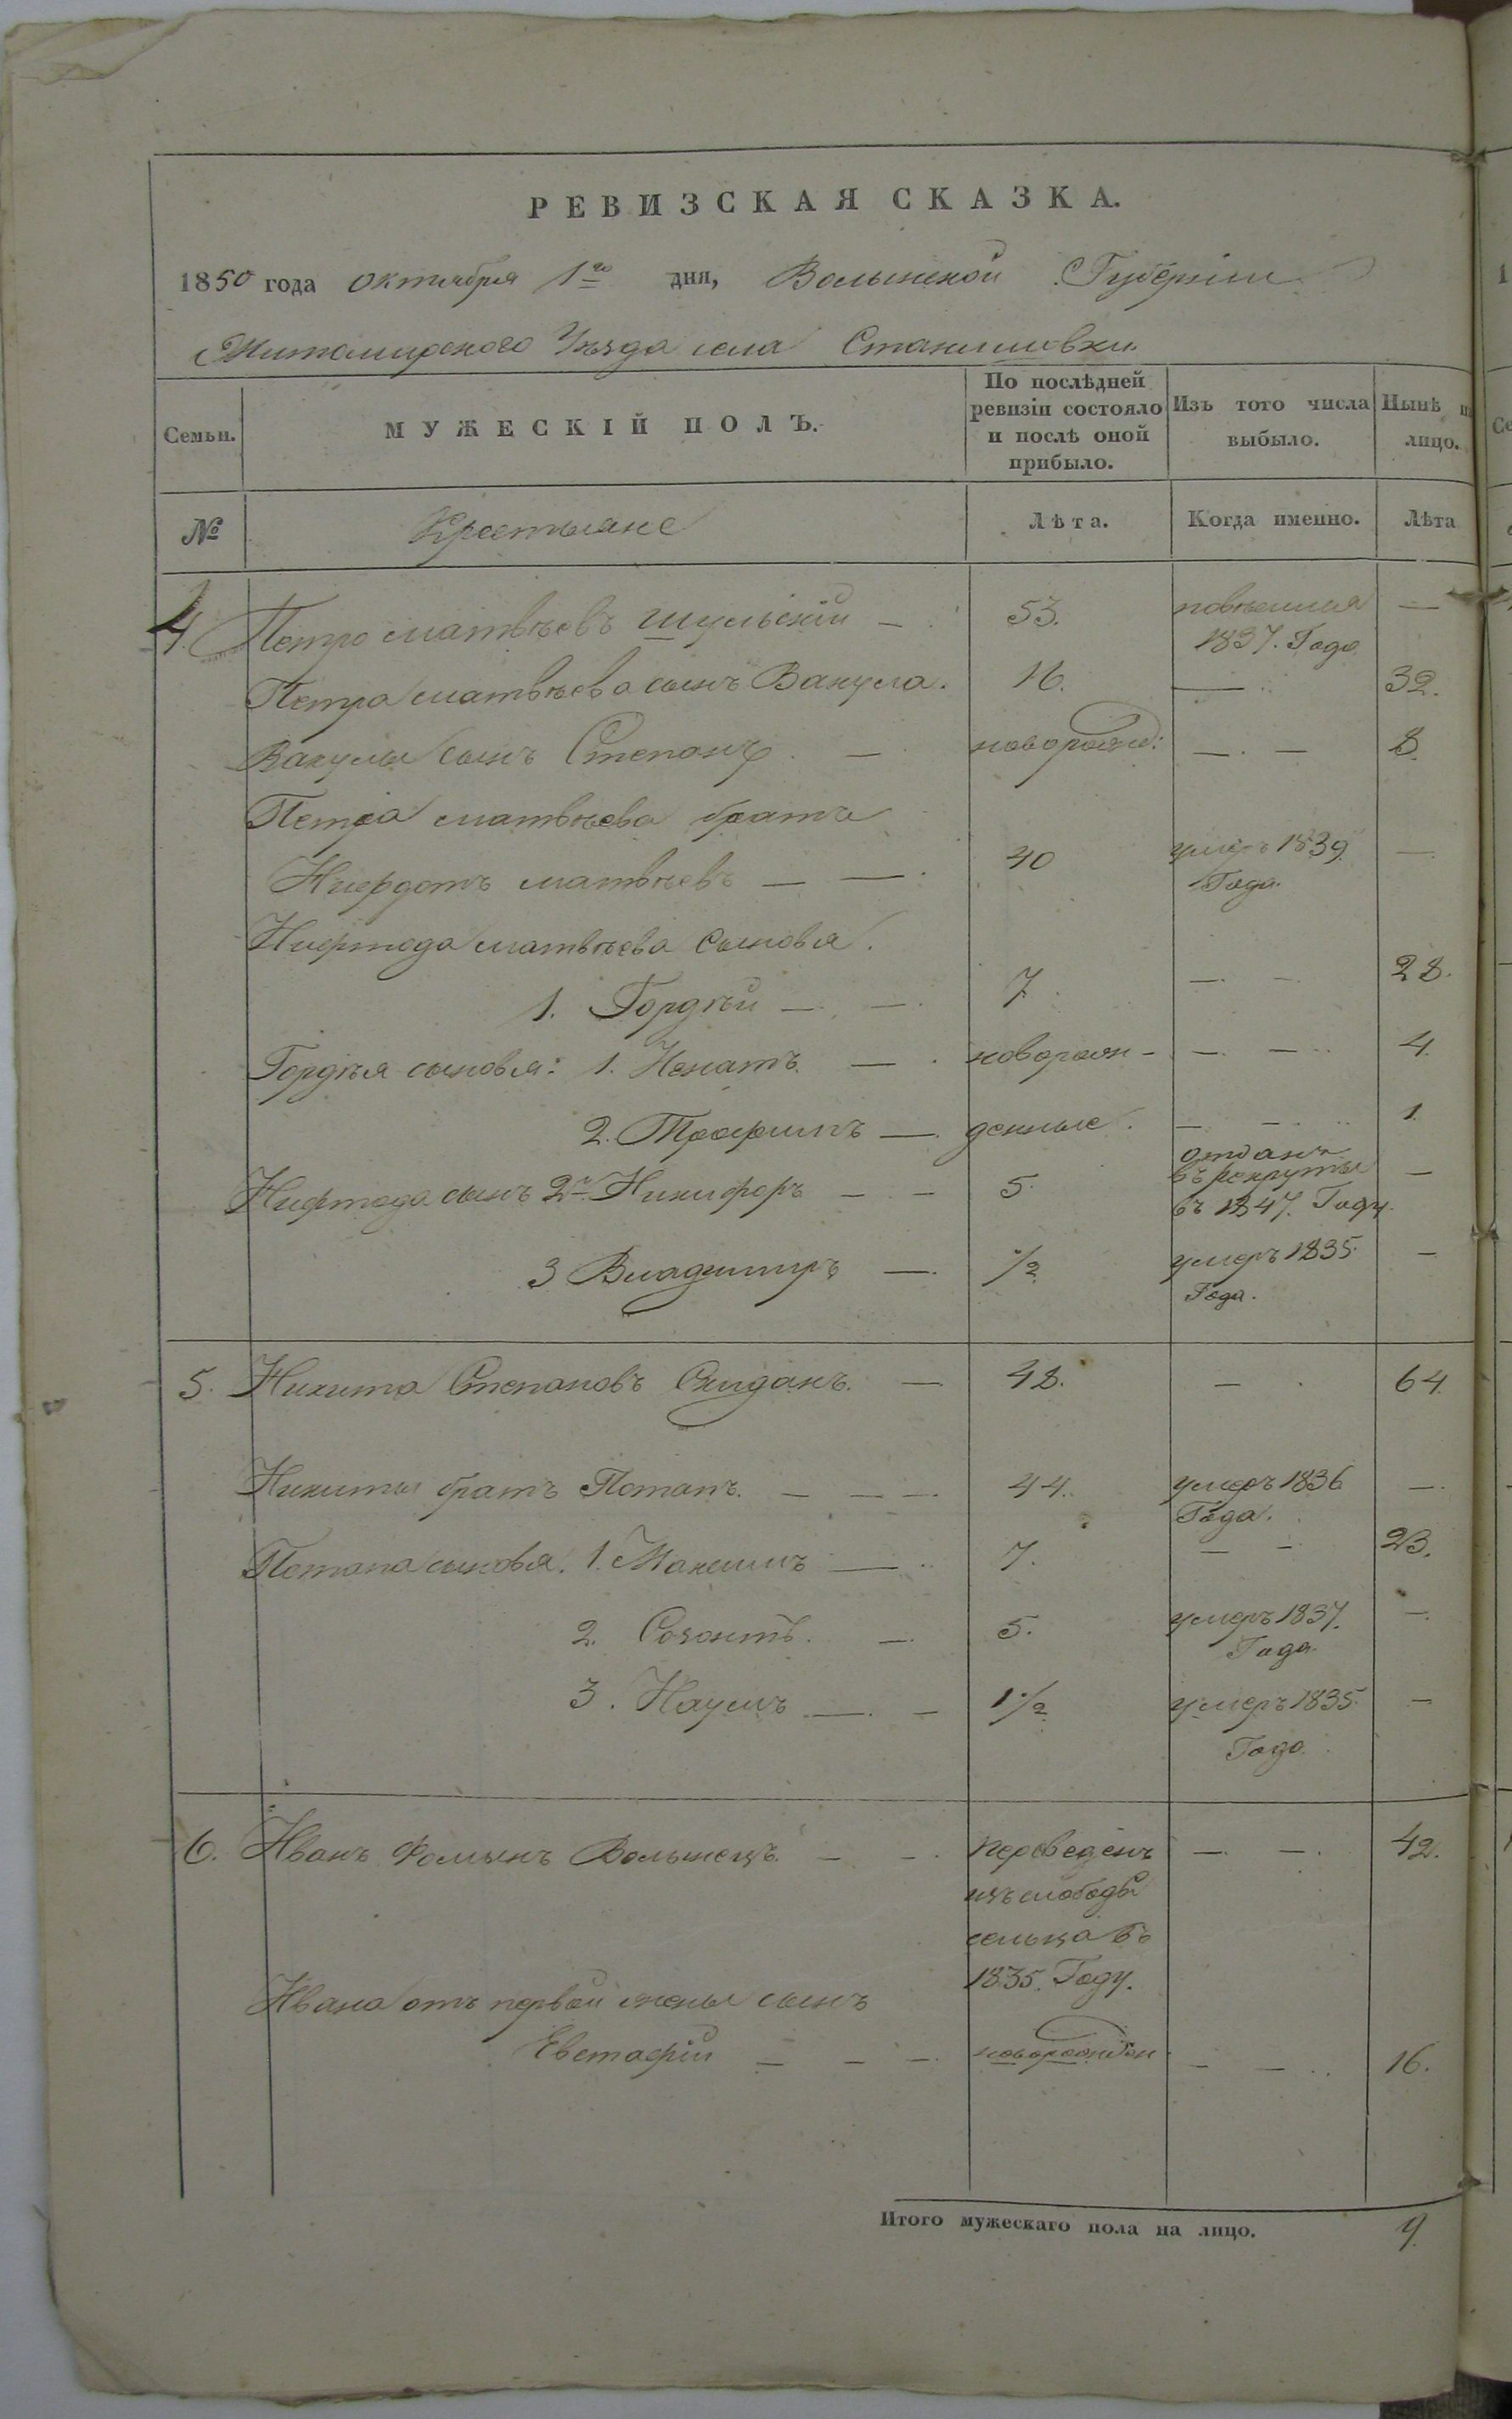 РЕВИЗСКАЯ СКАЗКА.
1850 года октября 1го дня, Волынской Губерніи
Житомирского Уѣзда села Станишовки.
Семьи. МУЖЕСКІЙ ПОЛЪ. По послѣдней ревизіи состояло и послѣ оной прибыло. Изъ того числа выбыло. Нынѣ на лицо.
№ Крестьяне Лѣта. Когда именно. Лѣта
4. Петро Матвѣевъ Шульскій — 53. 1837. Года —
Петра Матвѣева сынъ Вакула. 16. — 32.
Вакулы сынъ Степанъ — новорожд: — — 8
Петра Матвѣева братъ
Матвѣевъ — — 40 умеръ 1839. Года. —
Нифтода Матвѣева сыновья.
1. Гордѣй — — 7. — — 28.
Гордѣя сыновья: 1. Игнатъ — новорож- — — 4.
2. Трофимъ — денные. — — 1.
Нифтода сынъ 2й Никифоръ — — 5. отданъ въ рекруты въ 1847. Году. —
3 Владимиръ — 1/2 умеръ 1835. Года. —
5. Никита Степановъ Скиданъ. — 48. — 64.
Никиты братъ Потапъ. — — — 44. умеръ 1836 Года. —
Потапа сыновья. 1. Максимъ — 7. — — 23.
2. Созонтъ. — 5. умеръ 1837. Года. —
3. Наумъ — — 1 1/2 умеръ 1835. Года. —
6. Иванъ Фоминъ Волынецъ. — — переведенъ — — 42.
изъ слободы
сельца въ
1835. Году.
Ивана отъ первой жены сынъ
Евстафій — — — новорожден — — 16.
Итого мужескаго пола на лицо. 9.